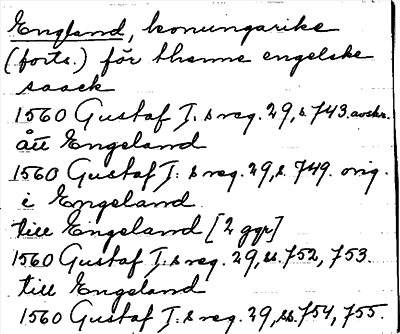 England, konungarike
(forts.) för thenne engelske
saack
1560 Gustaf I:s reg. 29, s. 743. avskr.
ått Engeland
1560 Gustaf I:s reg. 29, s. 749. orig.
i Engeland
till Eingeland [2 ggr]
1560 Gustaf I:s reg. 29, ss. 752, 753.
till Engeland
1560 Gustaf I:s reg. 29, ss. 754, 755.